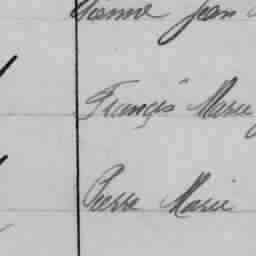 Jeanne Jean
François Marie
Pierre Marie